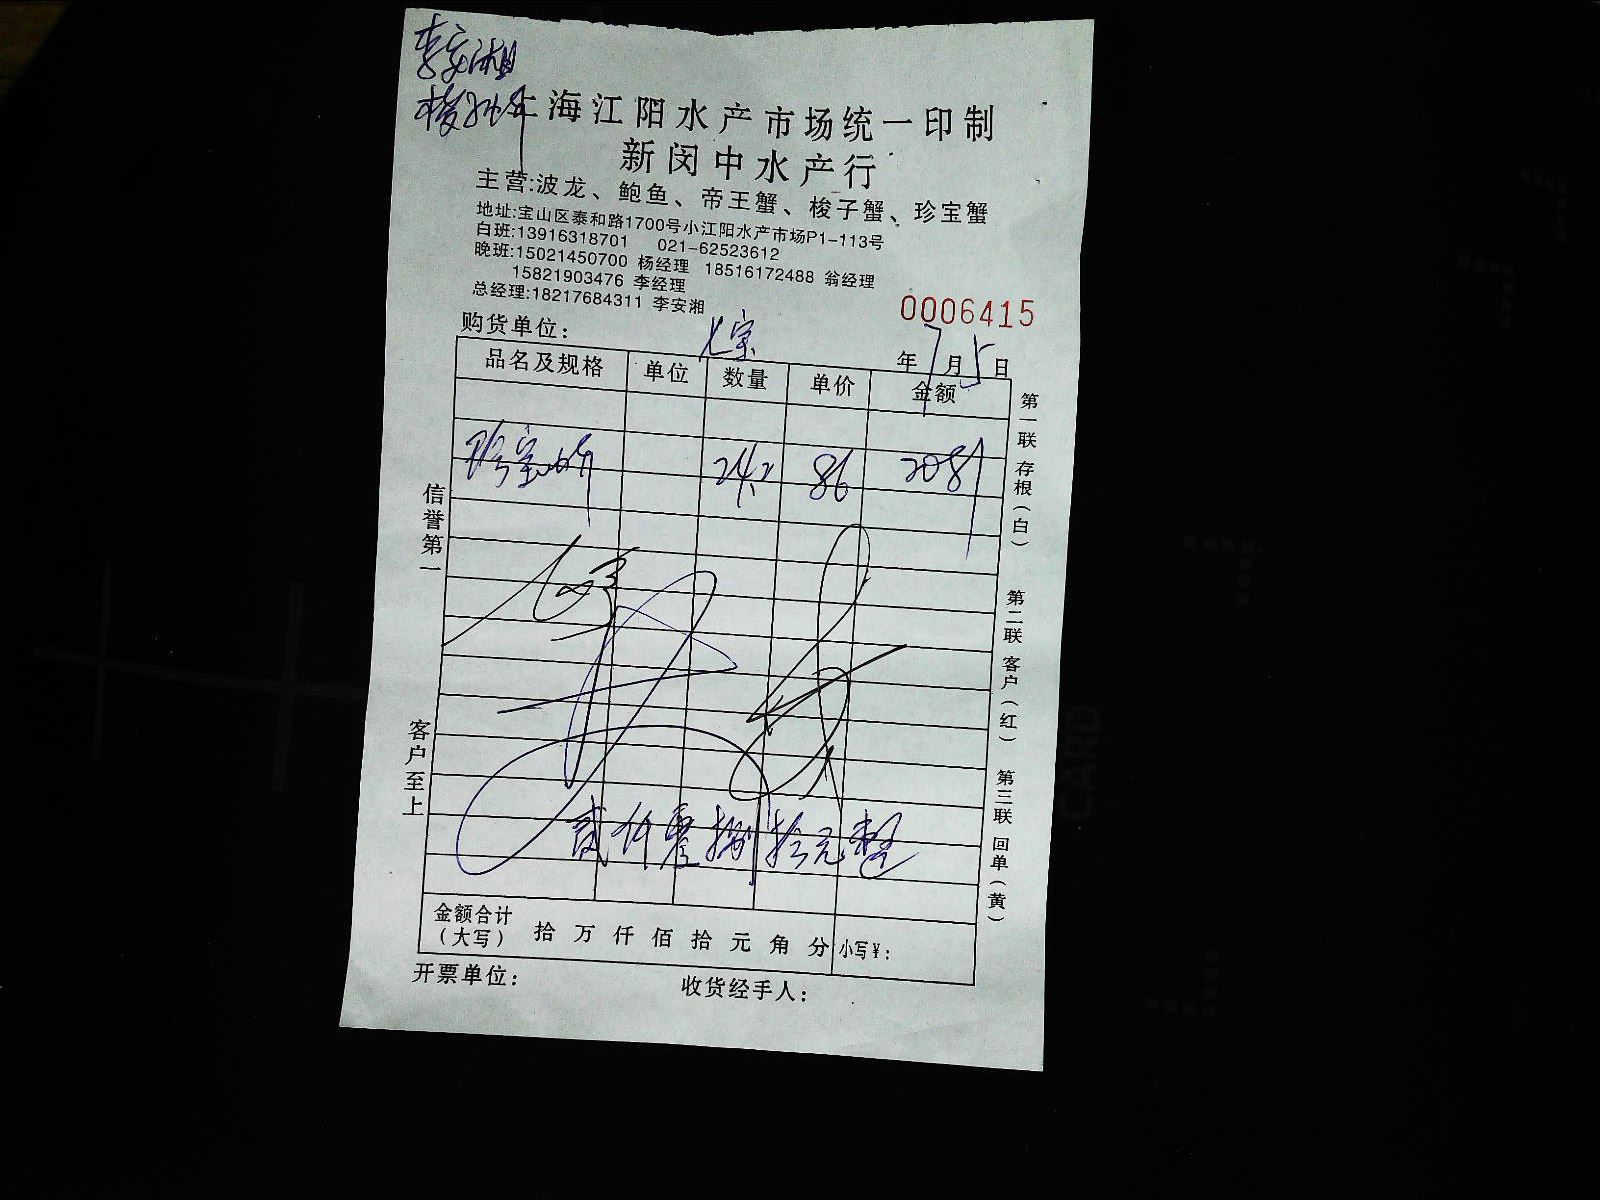 李安湘
上海江阳水产市场统一印制
新闵中水产行
主营:波龙、鲍鱼、帝王蟹、梭子蟹、珍宝蟹
地址:宝山区泰和路1700号小江阳水产市场P1-113号
白班:13916318701 021-62523612
晚班:15021450700 杨经理 18516172488 翁经理
15821903476 李经理
总经理:18217684311 李安湘
0006415
购货单位: 七宝
年7月5日
品名及规格 单位 数量 单价 金额
珍宝蟹 24.2 86 2081
贰仟零捌拾元整
金额合计(大写) 拾 万 仟 佰 拾 元 角 分 小写¥:
开票单位: 收货经手人:
信誉第一
客户至上
第一联 存根(白)
第二联 客户(红)
第三联 回单(黄)
CARD